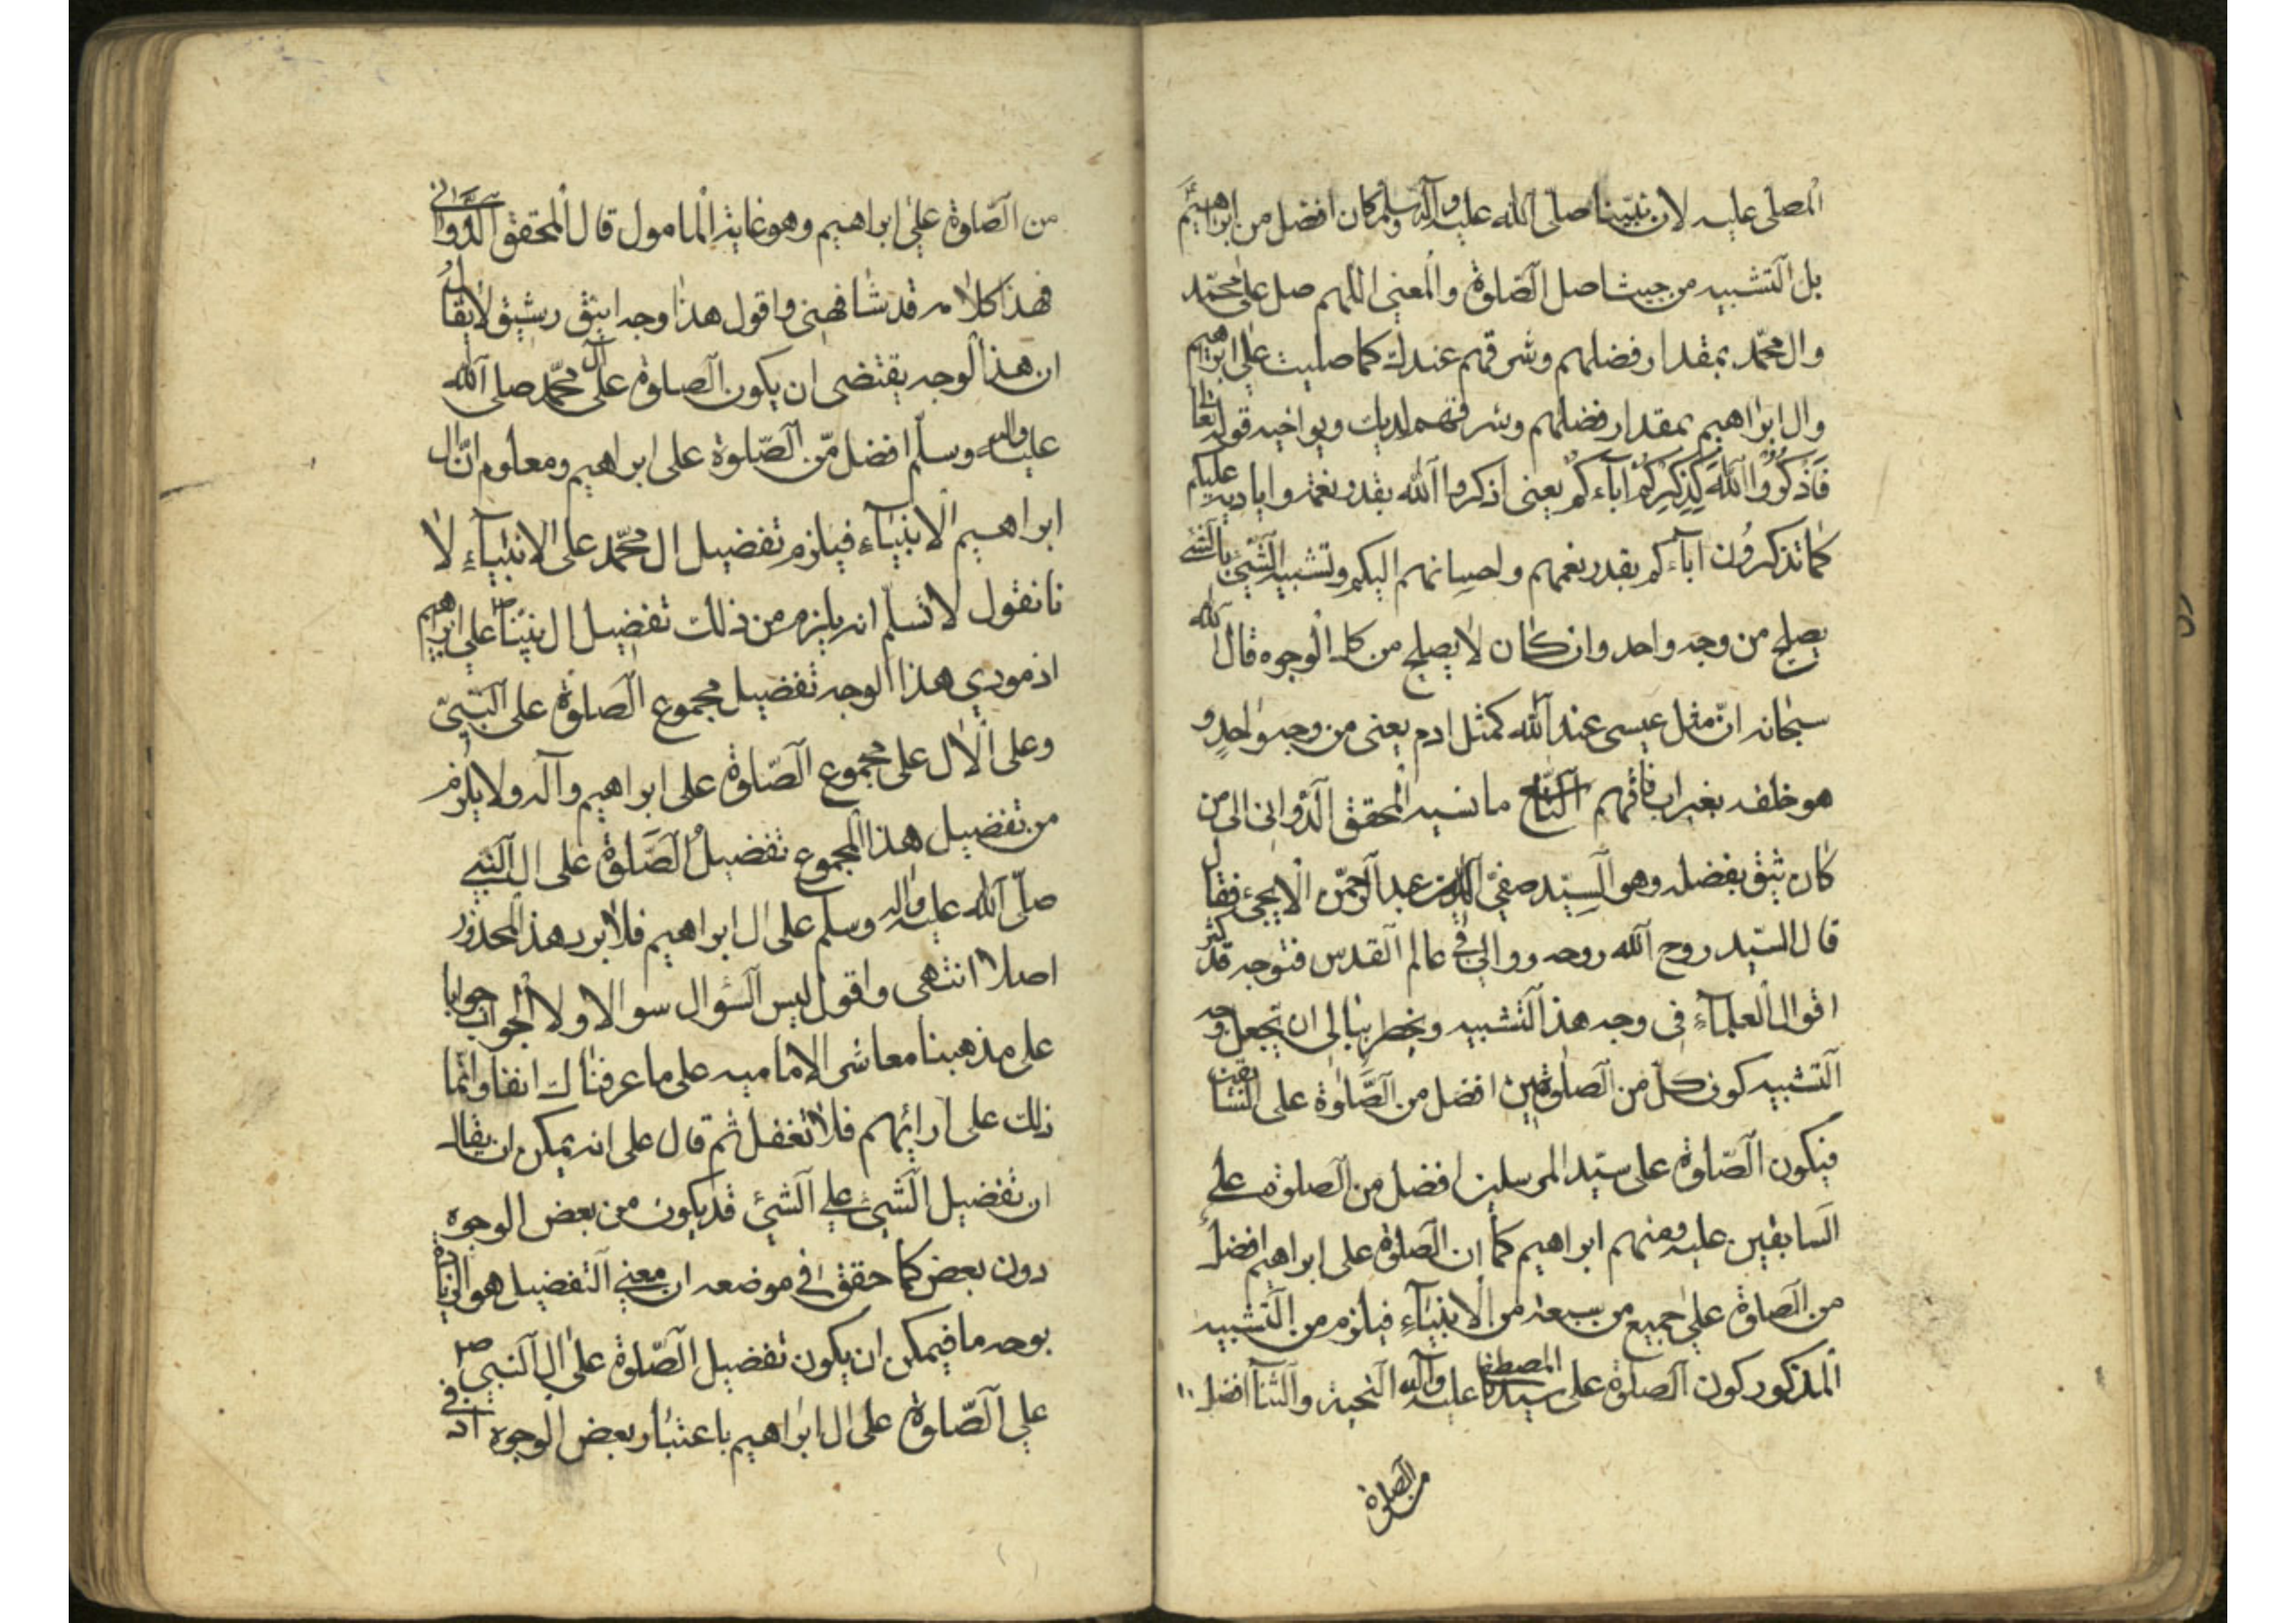 المصلى عليه لان نبيّنا صلى الله عليه وآله وسلم كان افضل من ابراهيم
بل التشبيه من حيث اصل الصّلوة والمعنى اللهم صل على محمّد
وال محمّد بمقدار فضلهم وشرفهم عندك كما صليت على ابراهيم
وال ابراهيم بمقدار فضلهم وشرفهم لديك ويواخيه قوله تعا
فَاذْكُرُوا اللهَ كَذِكْرِكُمْ آباءَكُمْ يعنى اذكروا الله بقدر نعمه واياديه عليكم
كما تذكرُون اباءكم بقدر نعمهم واحسانهم اليكم وتشبيه الشّئ بالشئ
يصلح من وجه واحد وان كان لا يصلح من كل الوجوه قال الله
سبحانه انّ مثل عيسى عند الله كمثل ادم يعنى من وجه واحدٍ و
هو خلقه بغير اب فافهم التّاسع ما نسبه المحقق الدّوانى الى من
كان يثق بفضله وهو السيّد صفىّ الدّين عبد الرّحمن الايجىّ فقال
قال السّيد روح الله روحه ووالى فى عالم القدس فتوحه قد كثر
اقوال العلماءِ فى وجه هذا التشبيه ويخطر ببالى ان تجعل وجه
التشبيه كون كلّ من الصّلوتين افضل من الصّلوة على السّابقين
فيكون الصّلوة على سيّد المرسلين افضل من الصلوة على
السابقين عليه ومنهم ابراهيم كما ان الصّلوة على ابراهيم افضل
من الصّلوة على جميع من سبقه من الانبياءِ فيلزم من التّشبيه
المذكور كون الصلوة على سيدنا المصطفى عليه وآله التحية والثناء افضل
من الصلوة
من الصّلوة على ابراهيم وهو غاية المامول قال المحقق الدّوانى
فهذا كلامه قد شافهنى واقول هذا وجه انيق رشيق لا يقال
ان هذا الوجه يقتضى ان يكون الصلوة على آل محمّد صلى الله
عليه واله وسلّم افضل من الصّلوة على ابراهيم ومعلوم انّ ال
ابراهيم الانبياءَ فيلزم تفضيل ال محمّد على الانبياءِ لا
نا نقول لا نسلّم انه يلزم من ذلك تفضيل ال نبيّنا ص على ابراهيم
اذ مودي هذا الوجه تفضيل مجموع الصّلوة على النّبىّ
وعلى الال على مجموع الصّلوة على ابراهيم وآله ولا يلزم
من تفضيل هذا المجموع تفضيلُ الصّلوة على ال النّبى
صلّى الله عليه واله وسلم على ال ابراهيم فلا يرد هذا المحذور
اصلا انتهى واقول ليس السّؤال سوالا ولا الجواب جوابا
على مذهبنا معاشر الاماميه على ما عرفناك انفا وانّما
ذلك على ارائهم فلا تغفل ثم قال على انه يمكن ان يقال
ان تفضيل الشّئ على الشّئ قد يكون من بعض الوجوه
دون بعض كما حقق فى موضعه ان معنى التفضيل هو الزيادة
بوجه ما فيمكن ان يكون تفضيل الصّلوة على ال النّبى ص
على الصّلوة على ال ابراهيم باعتبار بعض الوجوه